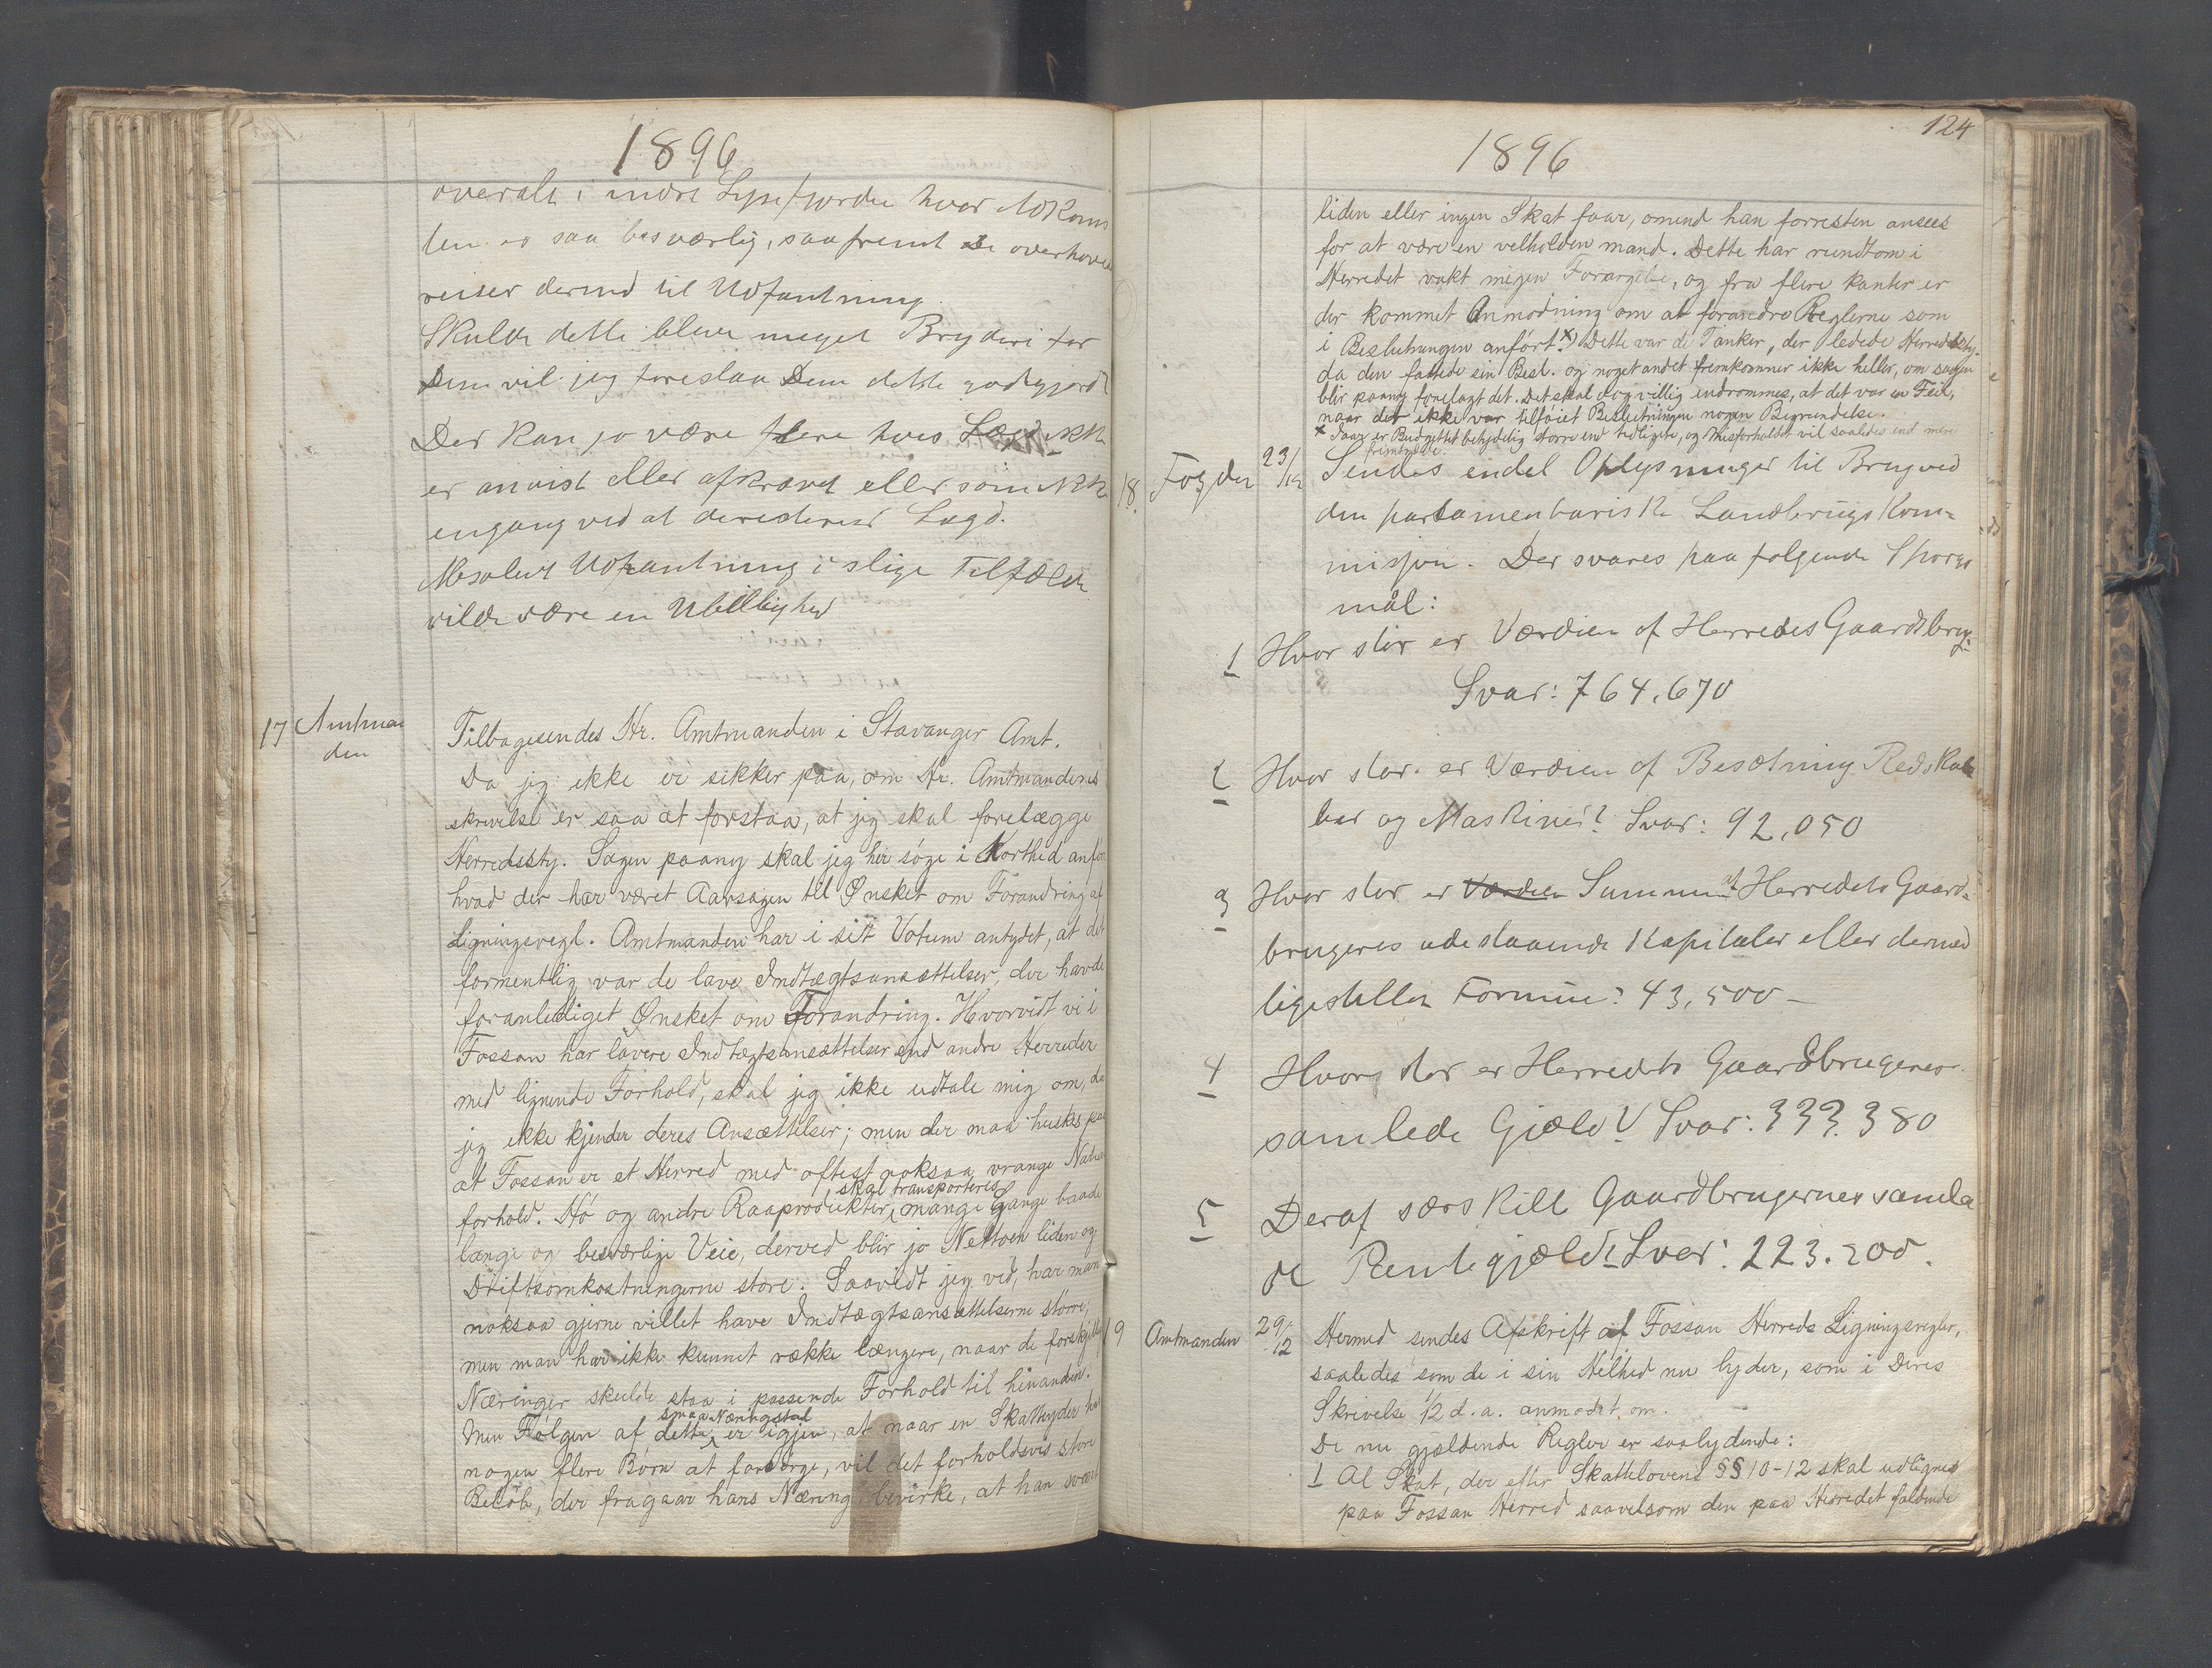 1896
overalt i indre Lysefjorden hvor Adkoms
ten er saa besværlig, saafremt De overhoved
reiser derind til Udpantning.
Skulde dette blive meget Bryderi for
Dem vil jeg foreslaa Dem dette godtgjordt
Der kan jo være flere hvis Lægd ikke
er anvist eller afkrævet eller som ikke
engang ved at de
Absolut Udpantning i slige Tilfælde
vilde være en Ubillighed
17 Amtman
den
Tilbagesendes Hr. Amtmanden i Stavanger Amt.
Da jeg ikke er sikker paa, om Hr. Amtmandens
skrivelse er saa at forstaa, at jeg skal forelægge
Herredssty. Sagen paany skal jeg her søge i Korthed anfør
hvad der har været Aarsagen til Ønsket om Forandring af
Ligningsregl. Amtmanden har i sit Votum antydet, at det
formentlig var de lave Indtægtsansættelser, der havde
foranlediget Ønsket om Forandring. Hvorvidt vi i
Fossan har lavere Indtægtsansættelser end andre Herreder
med lignende Forhold, skal jeg ikke udtale mig om, da
jeg ikke kjender deres Ansættelser; men der maa huskes paa
at Fossan er et Herred med oftest noksaa vrange Natur
forhold. Hø og andre Raaprodukter skal transporteres mange Gange baade
lange og besværlige Veie, derved blir jo Nettoen liden og
Driftsomkostningerne store. Saavidt jeg ved, har man
noksaa gjerne villet have Indtægtsansættelserne større,
men man har ikke kunnet række længere, naar de forskjellig
Næringer skulde staa i passende Forhold til hinanden.
Men Følgen af dette smaa Næringstal er igjen, at naar en Skatteyder har
nogen flere Børn at forsørge, vil det forholdsvis store
Beløb, der fragaar hans Næring bevirke, at han svært
124
1896
liden eller ingen Skat faar, omend han forresten ansees
for at være en velholden mand. Dette har rundtom i
Herredet vakt megen Forargelse, og fra flere kanter er
der kommet Anmodning om at forandre Reglerne som
i Beslutningen anført. x) Dette var de Tanker, der ledede Herredssty.
da den fattede sin Besl. og noget andet fremkommer ikke heller, om sagen
blir paany forelagt det. Det skal dog villig indrømmes, at det var en Feil,
naar der ikke var tilføiet Beslutningen nogen Begrundelse.
x Iaar er Budgettet betydelig større end tidligere, og Misforholdet vil saaledes end mere
fremtræde.
18 Fogden 23/12 Sendes endel Oplysninger til Brug ved
den parlamentariske Landbrugskom-
misjon. Der svares paa følgende Spørgs
mål:
1 Hvor stor er Værdien af Herredes Gaardsbrug.
Svar: 764,670
2 Hvor stor er Værdien af Besætning Redskab
ber og Maskiner? Svar: 92,050
3 Hvor stor er Værdien Summen af Herredets Gaard-
brugeres udestaaende Kapitaler eller dermed
ligestillet Formue? 43,500 –
4 Hvor stor er Herredets Gaardbrugeres
samlede Gjæld? Svar: 333.380
5 Deraf særskilt Gaardbrugernes samle
de Rentegjæld? Svar: 223.200.
19 Amtmanden 29/12 Hermed sendes Afskrift af Fossan Herreds Ligningsregler,
saaledes som de i sin Helhed nu lyder, som i Deres
Skrivelse 12 d.a. anmodet om.
De nu gjældende Regler er saalydende:
1 Al Skat, der efter Skattelovens §§ 10-12 skal udlignes
paa Fossan Herred saavelsom den paa Herredet faldende